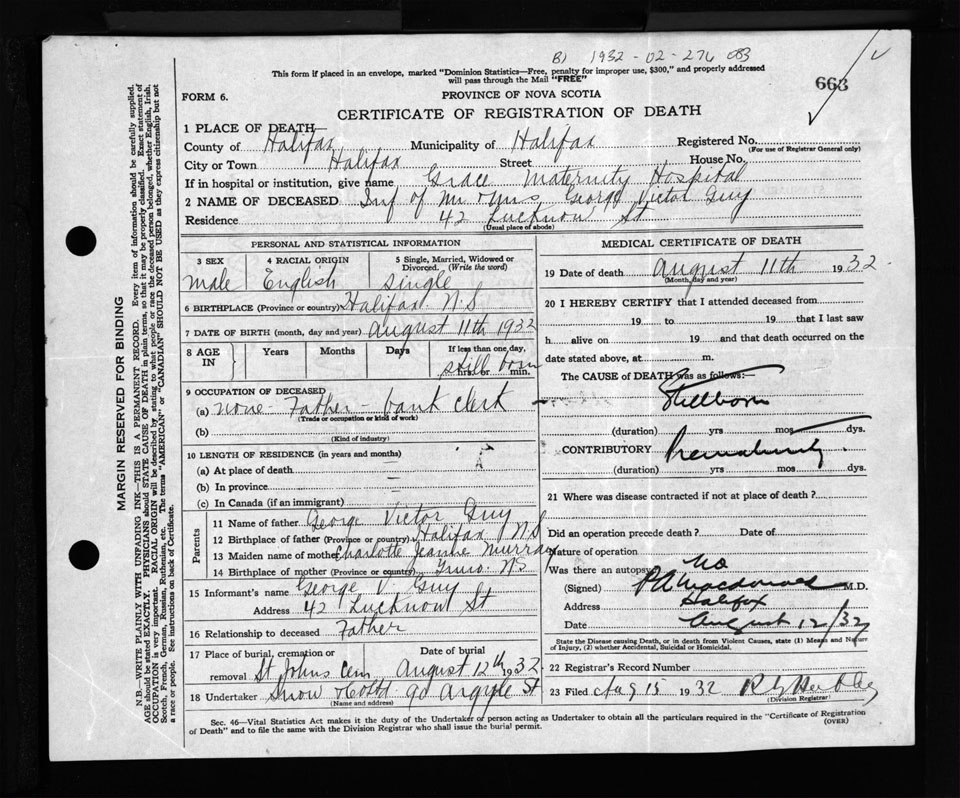 B) 1932-02-276 083
This form if placed in an envelope, marked "Dominion Statistics—Free, penalty for improper use, $300," and properly addressed
will pass through the Mail "FREE"
668
FORM 6.
PROVINCE OF NOVA SCOTIA
CERTIFICATE OF REGISTRATION OF DEATH
1 PLACE OF DEATH—
County of Halifax Municipality of Halifax Registered No.
(For use of Registrar General only)
City or Town Halifax Street House No.
If in hospital or institution, give name Grace Maternity Hospital
2 NAME OF DECEASED Inf of Mr & Mrs George Victor Guy
Residence 42 Lucknow St
(Usual place of abode)
PERSONAL AND STATISTICAL INFORMATION
3 SEX 4 RACIAL ORIGIN 5 Single, Married, Widowed or
Divorced. (Write the word)
Male English Single
6 BIRTHPLACE (Province or country) Halifax N.S
7 DATE OF BIRTH (month, day and year) August 11th 1932
8 AGE IN Years Months Days If less than one day,
hrs. or min.
still born
9 OCCUPATION OF DECEASED
(a) none - Father - bank clerk
(Trade or occupation or kind of work)
(b)
(Kind of industry)
10 LENGTH OF RESIDENCE (in years and months)
(a) At place of death
(b) In province
(c) In Canada (if an immigrant)
Parents
11 Name of father George Victor Guy
12 Birthplace of father (Province or country) Halifax N.S
13 Maiden name of mother Charlotte Jeanne Murray
14 Birthplace of mother (Province or country) Truro. NS
15 Informant's name George V. Guy
Address 42 Lucknow St
16 Relationship to deceased Father
17 Place of burial, cremation or Date of burial
removal St Johns Cem August 12th 1932
18 Undertaker Snow & Co Ltd 90 Argyle St
(Name and address)
MEDICAL CERTIFICATE OF DEATH
19 Date of death August 11th 1932.
(Month, day and year)
20 I HEREBY CERTIFY that I attended deceased from
19 to 19 that I last saw
h alive on 19 and that death occurred on the
date stated above, at m.
The CAUSE of DEATH was as follows:—
Stillborn
(duration) yrs mos dys.
CONTRIBUTORY Prematurity
(duration) yrs mos dys.
21 Where was disease contracted if not at place of death?
Did an operation precede death? Date of
Nature of operation
Was there an autopsy No
(Signed) P A Macdonald M.D.
Address Halifax
Date August 12/32
State the Disease causing Death, or in death from Violent Causes, state (1) Means and Nature
of Injury, (2) whether Accidental, Suicidal or Homicidal.
22 Registrar's Record Number
23 Filed Aug 15 1932
(Division Registrar)
Sec. 46—Vital Statistics Act makes it the duty of the Undertaker or person acting as Undertaker to obtain all the particulars required in the "Certificate of Registration
of Death" and to file the same with the Division Registrar who shall issue the burial permit.
(OVER)
MARGIN RESERVED FOR BINDING
N.B.—WRITE PLAINLY WITH UNFADING INK—THIS IS A PERMANENT RECORD. Every item of information should be carefully supplied.
AGE should be stated EXACTLY. PHYSICIANS should STATE CAUSE OF DEATH in plain terms, so that it may be properly classified. Exact statement of
OCCUPATION is very important. RACIAL ORIGIN will be described by stating to what people or race the deceased person belonged, whether English, Irish,
Scotch, French, German, Russian, Ruthenian, etc. The terms "AMERICAN" or "CANADIAN" SHOULD NOT BE USED as they express citizenship but not
a race or people. See instructions on back of Certificate.